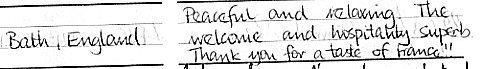 Peaceful and relaxing. The
Bath, England
welcome and hospitality superb.
Thank you for a taste of France!!!